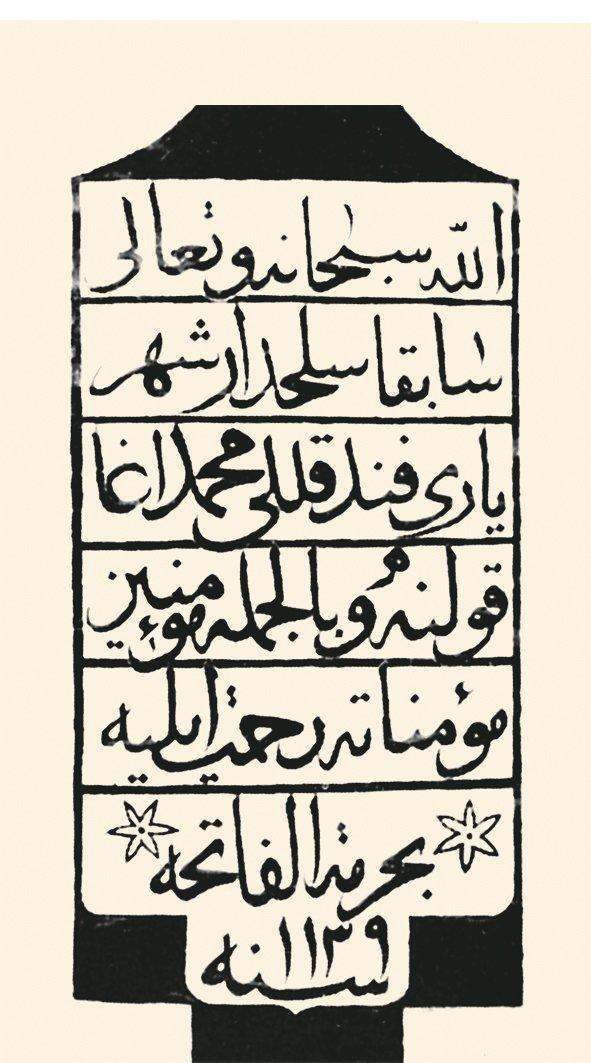 الله سبحانه وتعالى
سابقا سلحدار شهر
ياري فندقللي محمد اغا
قولنه وبالجمله مؤمنين
مؤمناته رحمت ايليه
بحرمة الفاتحه
سنه ١١٣٩